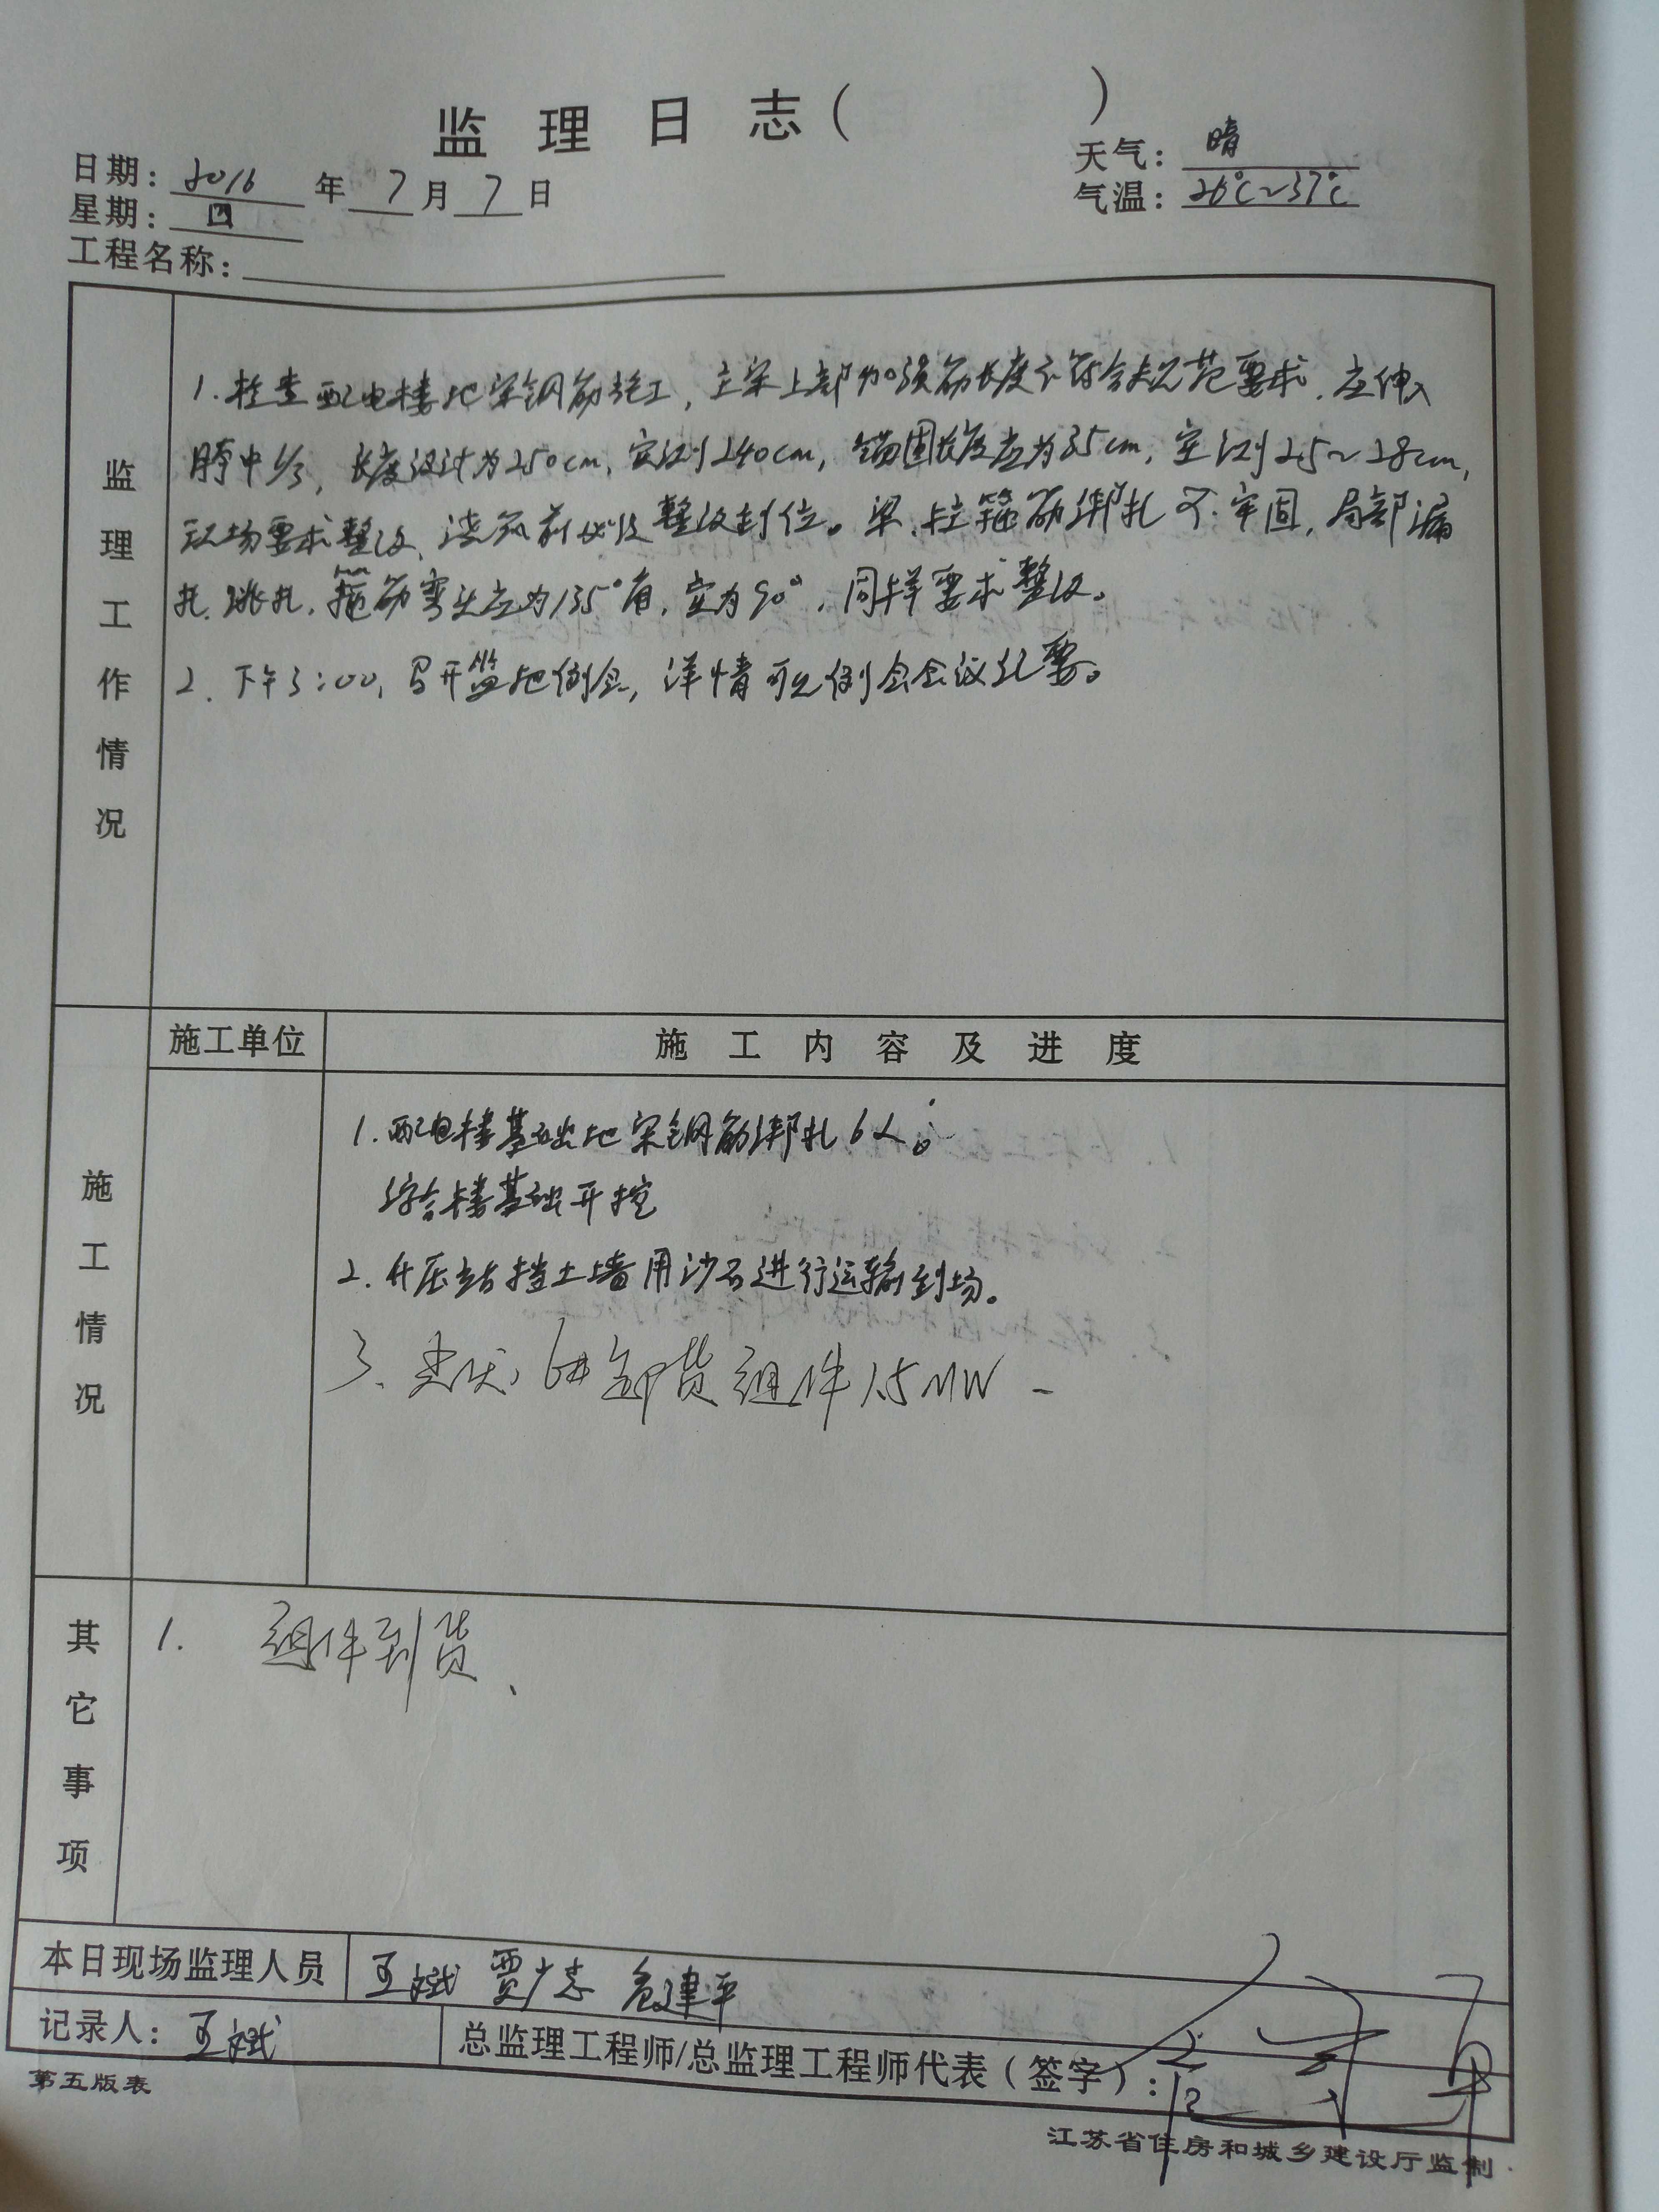 监理日志( )
日期: 2016 年 7 月 7 日
天气: 晴
星期: 四
气温: 26℃~37℃
工程名称:
监理工作情况
1. 检查配电楼地梁钢筋施工, 主梁上部加强筋长度不符合规范要求. 应伸入
跨中1/3, 长度设计为250cm, 实测240cm, 锚固长度应为35cm, 实测25~28cm,
现场要求整改, 浇筑前必须整改到位。梁、柱箍筋绑扎不牢固, 局部漏
扎. 跳扎. 箍筋弯头应为135°角, 实为90°, 同样要求整改。
2. 下午3:00, 召开监理例会, 详情可见例会会议纪要。
施工情况
施工单位
施工内容及进度
1. 配电楼基础地梁钢筋绑扎6人;
综合楼基础开挖
2. 升压站挡土墙用沙石进行运输到场。
3. 6# 卸货组件1.5MW
其它事项
1. 组件到货、
本日现场监理人员 王斌 贾少志 危建平
记录人: 王斌
总监理工程师/总监理工程师代表(签字):
第五版表
江苏省住房和城乡建设厅监制